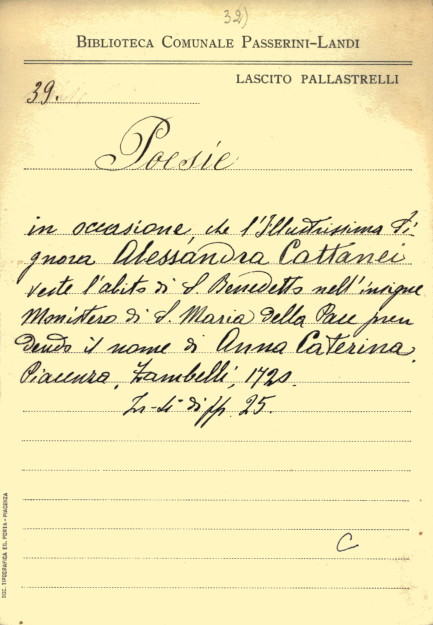 32)
BIBLIOTECA COMUNALE PASSERINI-LANDI
LASCITO PALLASTRELLI
39.
Poesie
in occasione che l'Illustrissima Si-
gnora Alessandra Cattanei
veste l'abito di S. Benedetto nell'insigne
Monistero di S. Maria della Pace pren
dendo il nome di Anna Caterina.
Piacenza, Zambelli, 1720.
In-4° di pp. 25.
C
SOC. TIPOGRAFICA ED. PORTA - PIACENZA